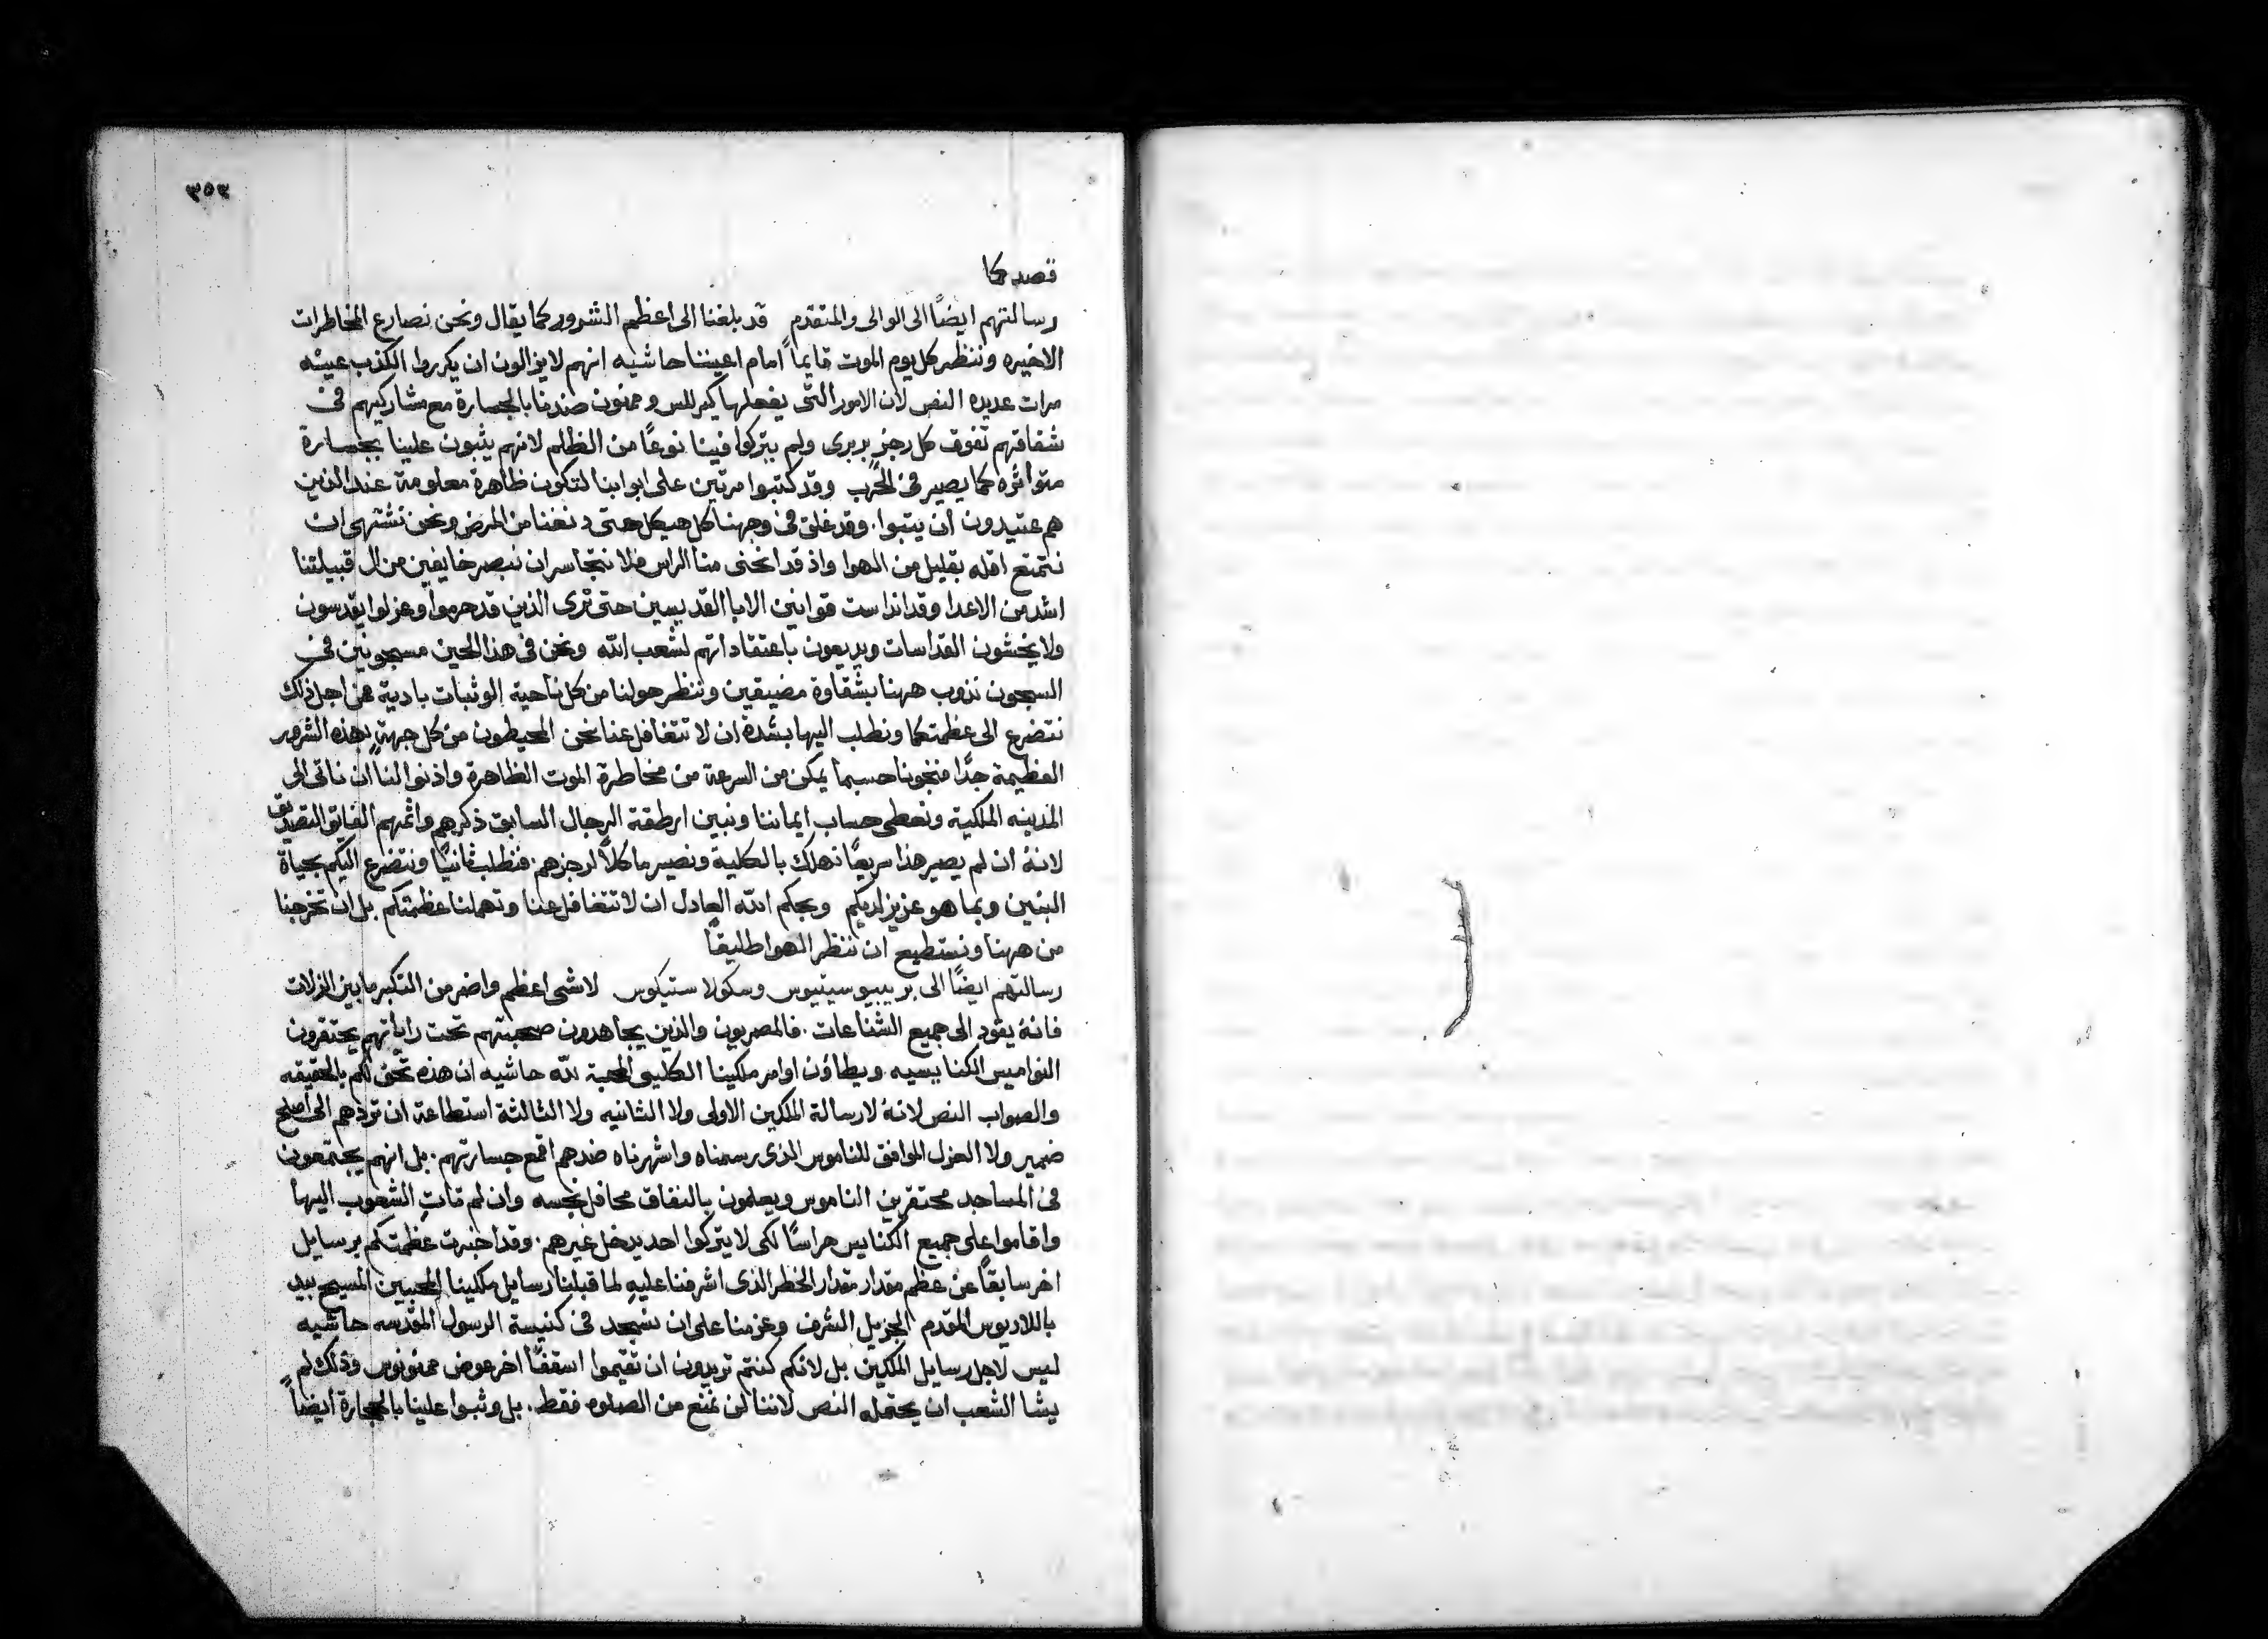 ٣٥٣
قصدكما
رسالتهم ايضًا الى الوالى والمتقدم قد بلغنا الى اعظم الشرور كما يقال ونحن نصارع المخاطرات
الاخيره وننظر كل يوم الموت قايمًا امام اعيننا حاشيه انهم لا يزالون ان يكرروا الكذب عينه
مرات عديده النص لان الامور التى يفعلها كيرللس وممنون ضدنا بالجسارة مع مشاركيهم فى
شقاقهم تفوق كل رجز بربرى ولم يتركوا فينا نوعًا من الظلم لانهم يثبون علينا بجسارة
متواتره كما يصير فى الحرب وقد كتبوا مرتين على ابوابنا لتكون ظاهرة معلومة عند الذين
هم عتيدون ان يثبوا. وقد غلق فى وجهنا كل هيكل حتى دنفنا من المرض ونحن نشتهى ان
نتمتع اقله بقليل من الهوا واذ قد انحنى منا الراس فلا نتجاسر ان نبصر خايفين من ال قبيلتنا
اشد من الاعدا وقد انداست قوانين الابا القديسين حتى نرى الذين قد حرموا وعزلوا يقدسون
ولا يخشون القداسات ويريعون باعتقاداتهم لشعب الله ونحن فى هذا الحين مسجونين فى
السجون نذوب ههنا بشقاوة مضيقين وننظر حولنا من كل ناحية الوثبات بادية فمن اجل ذلك
نتضرع الى عظمتكما ونطلب اليها بشدة ان لا تتغافل عنا نحن المحيطون من كل جهةٍ بهذه الشرور
العظيمة جدًا فنجونا حسبما يمكن من السرعة من مخاطرة الموت الظاهرة واذنوا لنا ان ناتى الى
المدينه الملكية ونعطى حساب ايماننا ونبين ارطقة الرجال السابق ذكرهم واثمهم الفايق التصديق
لانهُ ان لم يصير هذا سريعًا نهلك بالكلية ونصير ماكلًا لرجزهم. فنطلب ثانيًا ونتضرع اليكم بحياة
البنين وبما هو عزيز لديكم وبحكم الله العادل ان لا تتغافل عنا وتهملنا عظمتكم بل ان تخرجنا
من ههنا ونستطيع ان ننظر الهوا طليقًا
رسالتهم ايضًا الى بريبيوسيتيوس وسكولاستيكوس لا شى اعظم واضر من التكبر ما بين الزلات
فانهُ يقود الى جميع الشناعات. فالمصريون والذين يجاهدون صحبتهم تحت راياتهم يحتقرون
النواميس الكنايسيه ويطاون اوامر ملكينا الكليى المحبة لله حاشيه ان هذه تحق لكم بالحقيقه
والصواب النص لانهُ لا رسالة الملكين الاولى ولا الثانيه ولا الثالثة استطاعة ان تردهم الى اصلح
ضمير ولا العزل الموافق للناموس الذى رسمناه واشهرناه ضدهم اقمع جسارتهم. بل انهم يجتمعون
فى المساجد محتقرين الناموس ويعملون بالنفاق محافل نجسه وان لم تات الشعوب اليها
واقاموا على جميع الكنايس حراسًا لكى لا يتركوا احد يدخل غيرهم. وقد اخبرت عظمتكم برسايل
اخر سابقًا عن عظم مقدار مقدار الخطر الذى اشرفنا عليهِ لما قبلنا رسايل ملكينا المحبيين المسيح بيد
باللاديوس المقدم الجزيل الشرف وعزمنا على ان نسجد فى كنيسة الرسول المقدسه حاشيه
ليس لاجل رسايل الملكين بل لانكم كنتم تريدون ان تقيموا اسقفًا اخر عوض ممنونوس وذلك لم
يشا الشعب ان يحتمله النص لاننا لن نمنع من الصلوه فقط. بل وثبوا علينا بالحجارة ايضًا